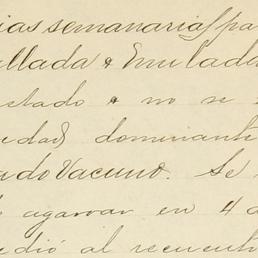 ias semanarias pa
llada & Emilada
stado & no se
edad dominant
ado Vacuno. Se
agarrar en 4 d
edió al recuent